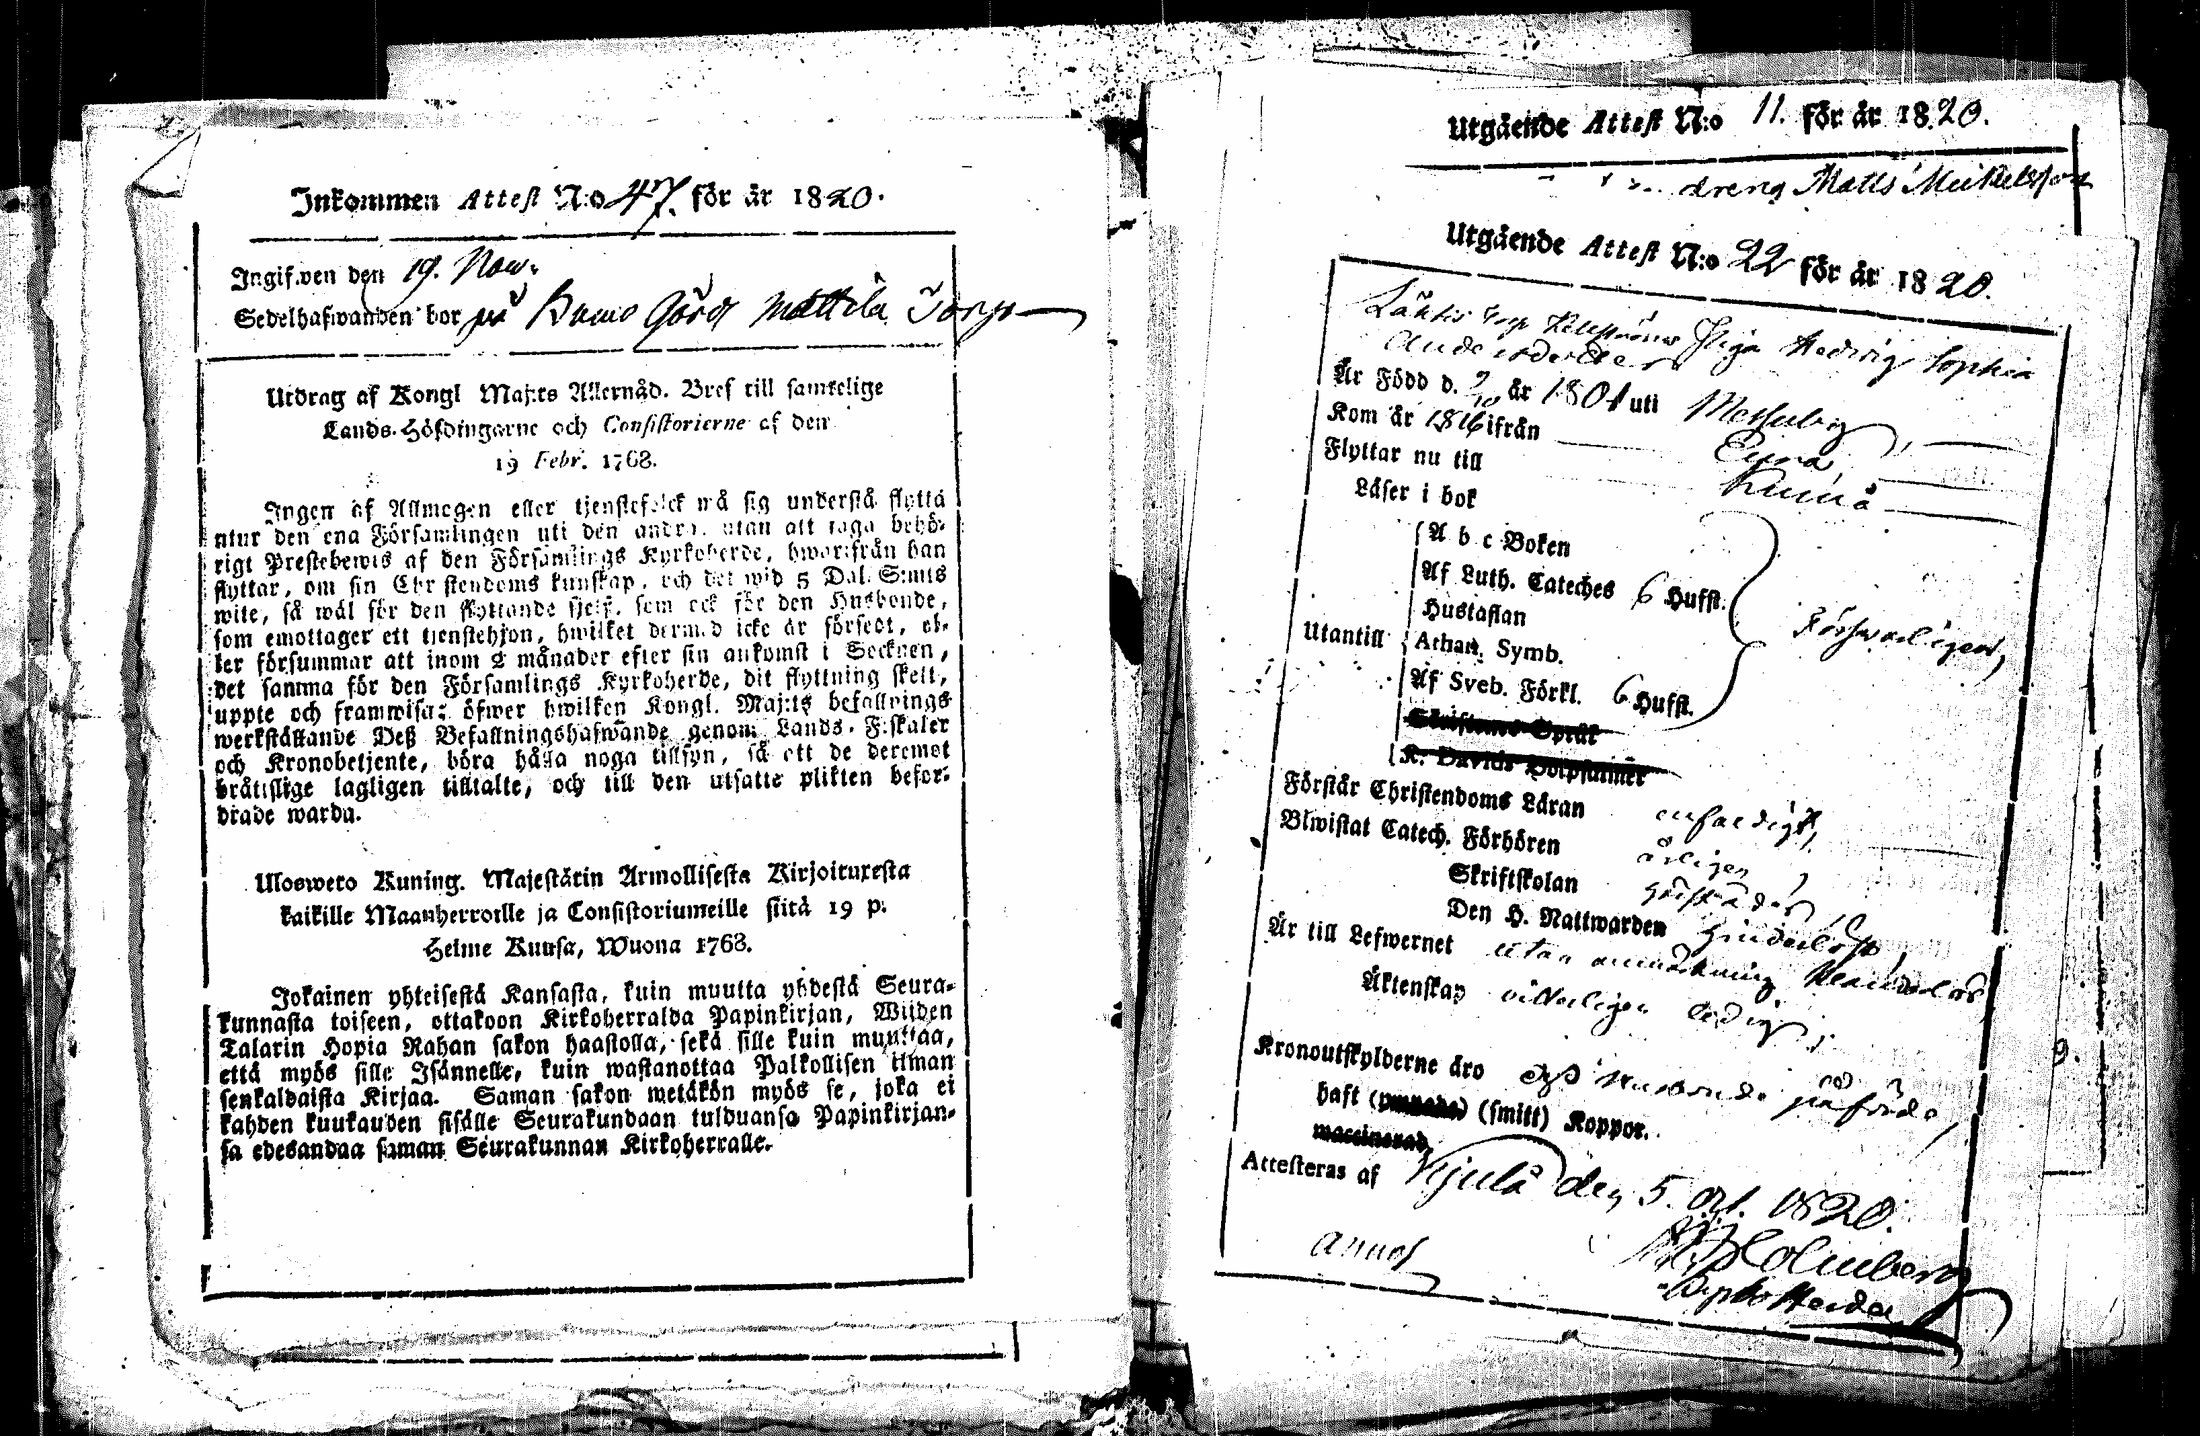 Inkommen Attest N:o 47. för år 1820.
Ingifwen den 19. Now.
Sedelhafwanden bor på Gård Mattila Torp
Utdrag af Kongl Maj:ts Allernåd. Bref till samtelige
Lands-Höfdingarne och Consistorierne af den
19 Febr. 1768.
Ingen af Allmogen eller tjenstefolck må sig understå flytta
utur den ena Församlingen uti den andra, utan att taga behö-
rigt Prestebewis af den Församlings Kyrkoherde, hwarifrån han
flyttar, om sin Christendoms kunskap, och det wid 5 Dal. S:mts
wite, så wäl för den flyttande sjelf, som ock för den Husbonde,
som emottager ett tjenstehjon, hwilket dermed icke är försedt, el-
ler försummar att inom 2 månader efter sin ankomst i Socknen,
det samma för den Församlings Kyrkoherde, dit flyttning skett,
uppte och framwisa; öfwer hwilken Kongl. Maj:ts befallnings
werkställande Deß Befallningshafwande genom Lands-Fiskaler
och Kronobetjente, böra hålla noga tillsyn, så att de deremot
bråttslige lagligen tilltalte, och till den utsatte plikten befor-
drade warda.
Uloswero Kuning. Majestätin Armollisesta Kirjoituxesta
kaikille Maanherroille ja Consistoriumeille siitä 19 p.
Helme Kuusa, Wuona 1768.
Jokainen yhteisestä Kansasta, kuin muutta yhdestä Seura-
kunnasta toiseen, ottakoon Kirkoherralda Papinkirjan, Wiiden
Talarin Hopia Rahan sakon haastolla, sekä sille kuin muuttaa,
että myös sille Isännelle, kuin wastanottaa Palkollisen ilman
senkaldaista Kirjaa. Saman sakon wetäkön myös se, joka ei
kahden kuukauden sisälle Seurakundaan tulduansa Papinkirjan-
sa edesandaa saman Seurakunnan Kirkoherralle.
Utgående Attest N:o 11. för år 1820.
dreng Matts Mickelsson
Utgående Attest N:o 22 för år 1820.
Torp Piga Hedvig Sophia
Andersdotter
Är Född d. år 1801 uti
Kom år 1816 ifrån Eura,
Flyttar nu till Kumå
Läser i bok
A b c Boken
Af Luth. Cateches 6 Hufst.
Hustaflan
Utantill Athan. Symb. Förswarligen,
Af Sveb. Förkl. 6 Hufst.
Skriftenes Språk
K. Davids Botpsalmer
Förstår Christendoms Läran enfaldigt,
Biwistat Catech. Förhören årligen,
Skriftskolan
Den H. Nattwarden
Är till Lefwernet utan anmärkning
Äktenskap witterligen ledig;
Kronoutskylderne äro påförde,
haft (ympade) (smitt) Koppor.
vaccinerad
Attesteras af Kjulå den 5. Oct. 1820.
Holmberg
Kyrko Herde
9.